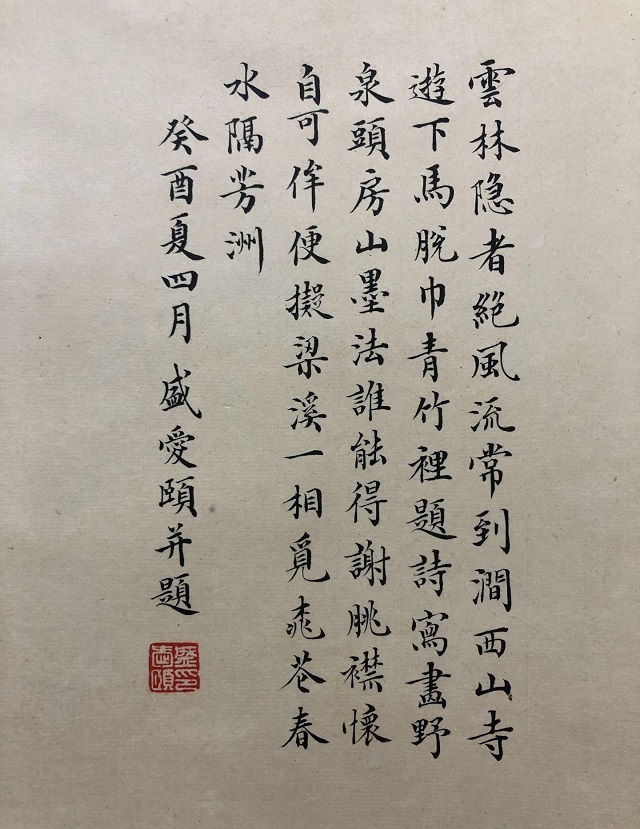 雲林隐者絕風流常到澗西山寺
遊下馬脫巾青竹裡題詩寫畫野
泉頭房山墨法誰能得謝眺襟懷
自可侔便擬梁溪一相覓桃花春
水隔芳洲
癸酉夏四月 盛愛頤并題
盛愛頤印